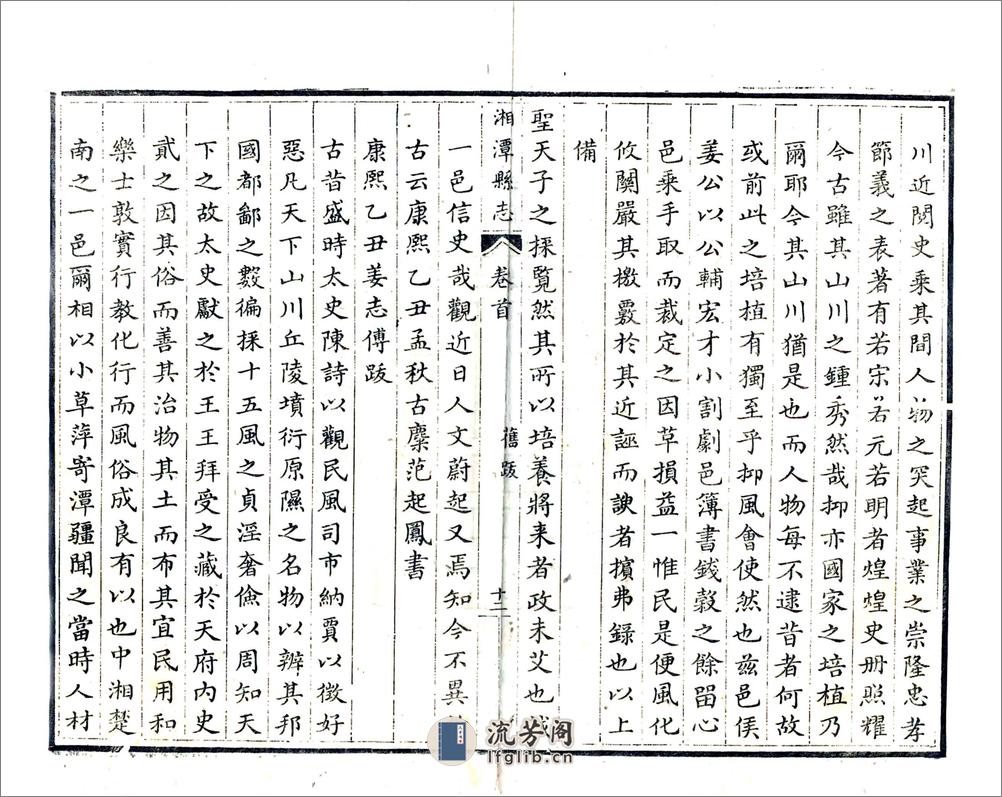 川近閱史乘其間人物之突起事業之崇隆忠孝
節義之表著有若宋若元若明者煌煌史册照耀
今古雖其山川之鍾秀然哉抑亦國家之培植乃
爾耶今其山川猶是也而人物每不逮昔者何故
或前此之培植有獨至乎抑風會使然也兹邑侯
姜公以公輔宏才小割劇邑簿書錢穀之餘留心
邑乘手取而裁定之因草損益一惟民是便風化
攸關嚴其檄覈於其近誣而諛者擯弗錄也以上
備
聖天子之採覽然其所以培養將来者政未艾也
湘潭縣志 卷首 舊跋 十二
一邑信史哉觀近日人文蔚起又焉知今不異
古云康熙乙丑孟秋古麋范起鳳書
康熙乙丑姜志傅跋
古昔盛時太史陳詩以觀民風司市納賈以徵好
惡凡天下山川丘陵墳衍原隰之名物以辨其邦
國都鄙之數徧採十五風之貞淫奢儉以周知天
下之故太史獻之於王王拜受之藏於天府内史
貳之因其俗而善其治物其土而布其宜民用和
樂士敦實行教化行而風俗成良有以也中湘楚
南之一邑爾相以小草萍寄潭疆聞之當時人材
流芳阁
lfglib.cn